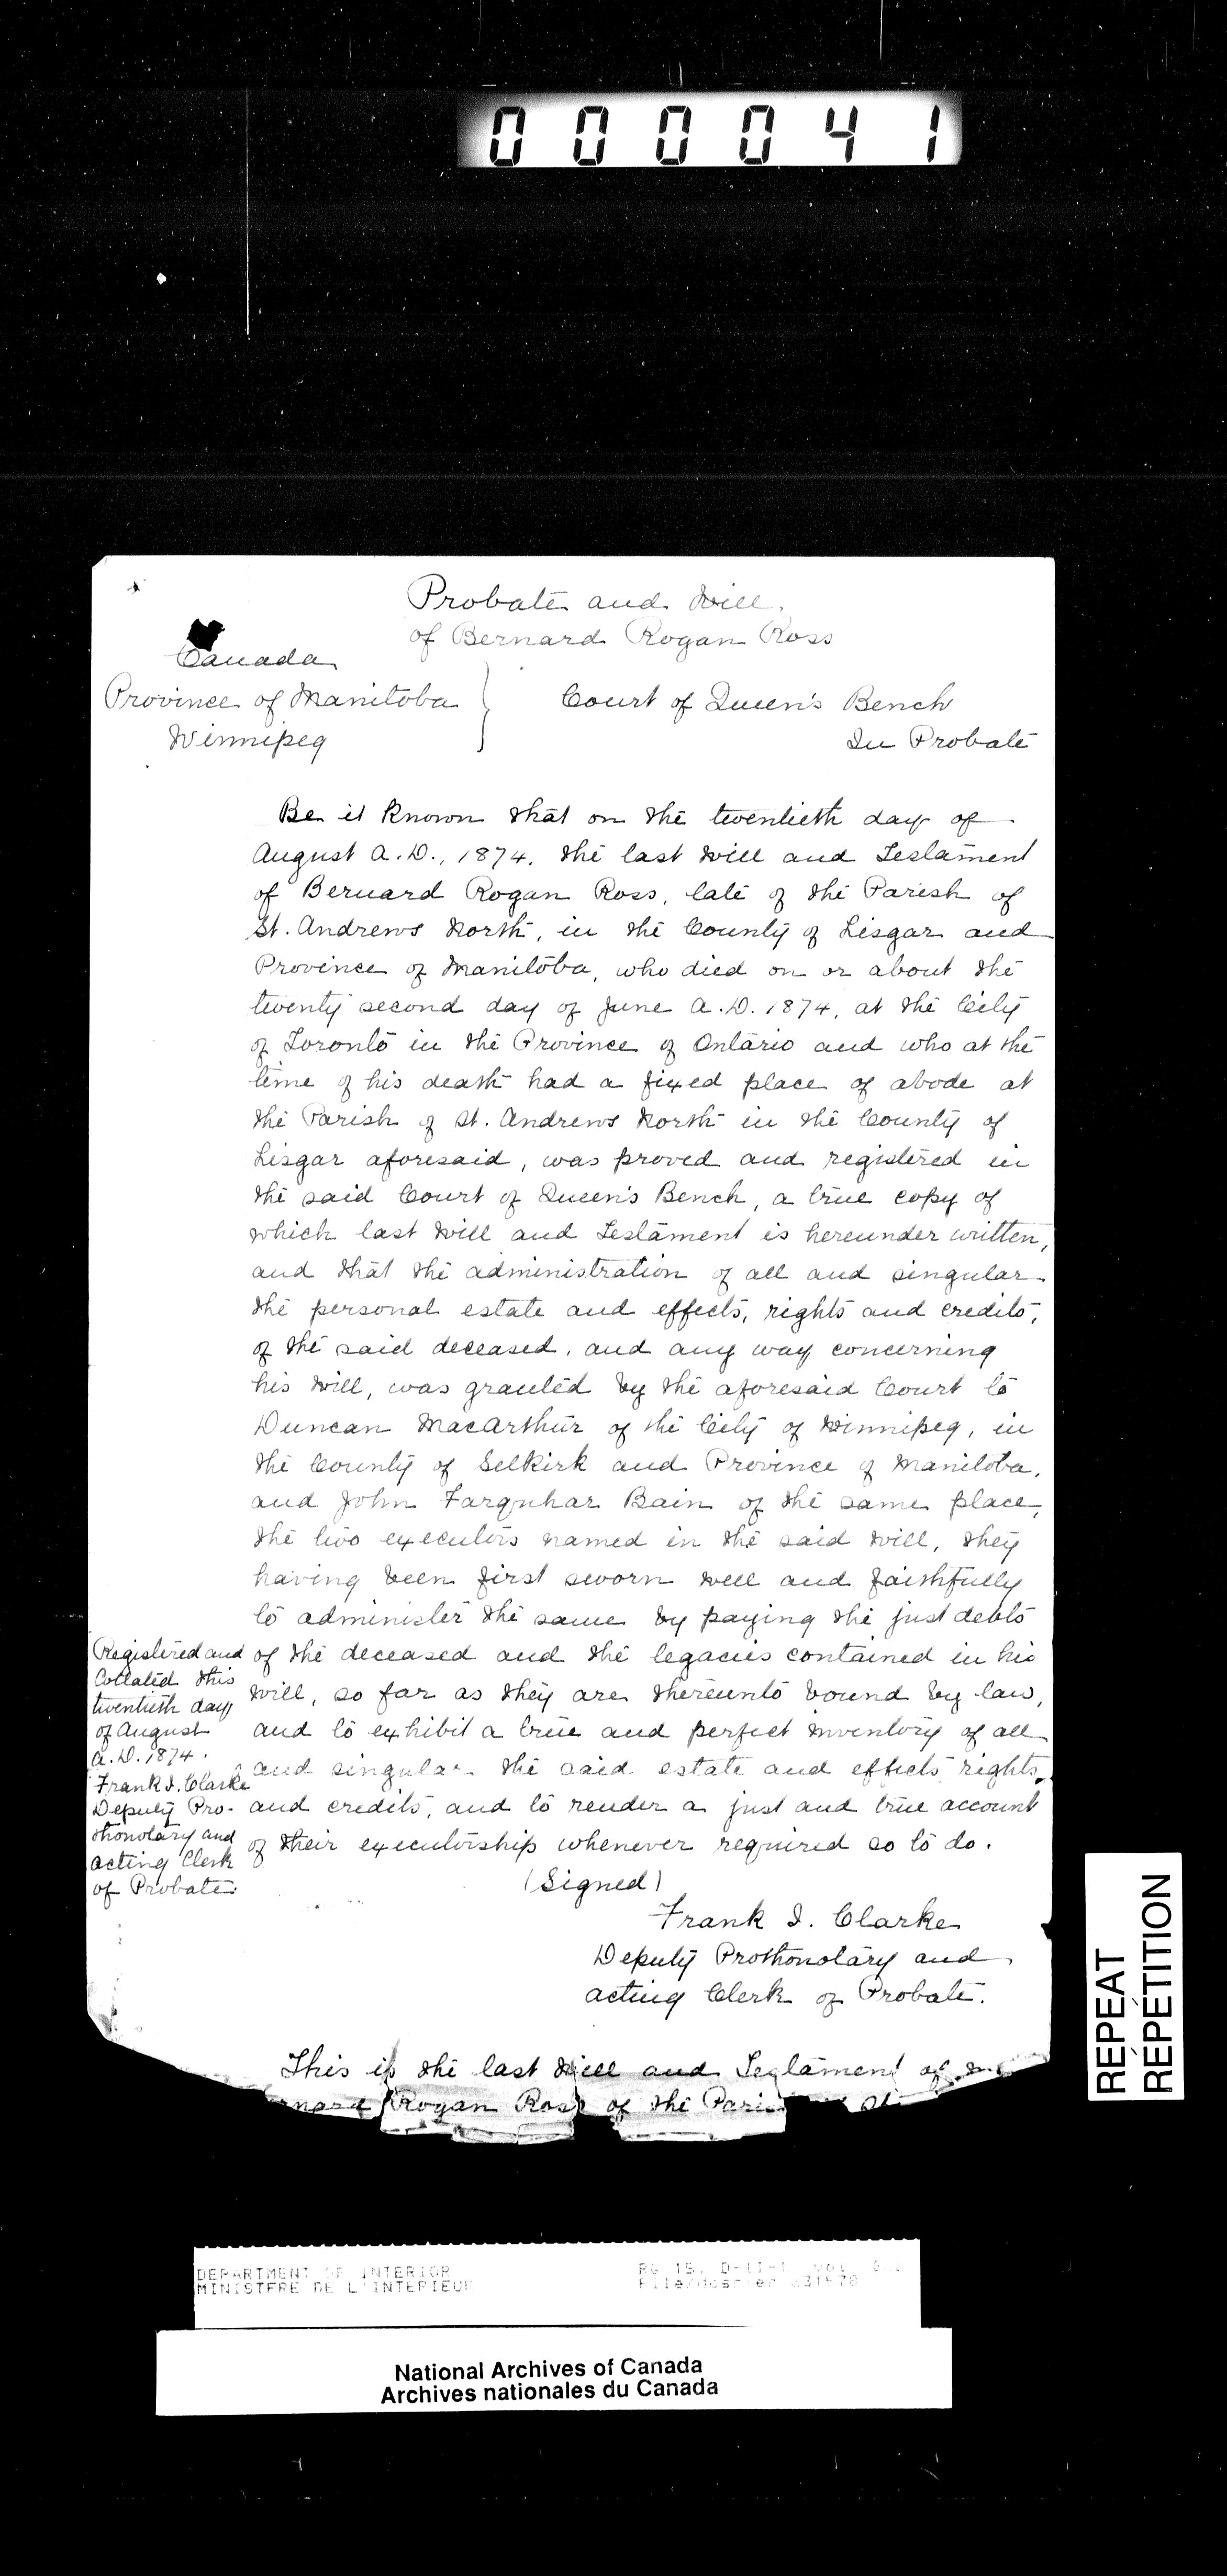 000041
Probate and Will
of Bernard Rogan Ross
Canada
Province of Manitoba
Winnipeg
Court of Queen's Bench
In Probate
Be it known that on the twentieth day of
August A.D., 1874, the last Will and Testament
of Bernard Rogan Ross, late of the Parish of
St. Andrews North, in the County of Lisgar and
Province of Manitoba, who died on or about the
twenty second day of June A.D. 1874, at the City
of Toronto in the Province of Ontario and who at the
time of his death had a fixed place of abode at
the Parish of St. Andrews North in the County of
Lisgar aforesaid, was proved and registered in
the said Court of Queen's Bench, a true copy of
which last Will and Testament is hereunder written,
and that the administration of all and singular
the personal estate and effects, rights and credits,
of the said deceased, and any way concerning
his Will, was granted by the aforesaid Court to
Duncan MacArthur of the City of Winnipeg, in
the County of Selkirk and Province of Manitoba,
and John Farquhar Bain of the same place,
the two executors named in the said Will, they
having been first sworn well and faithfully
to administer the same by paying the just debts
of the deceased and the legacies contained in his
Will, so far as they are thereunto bound by law,
and to exhibit a true and perfect inventory of all
and singular the said estate and effects, rights,
and credits, and to render a just and true account
of their executorship whenever required so to do.
Registered and
Collated this
twentieth day
of August
A.D. 1874.
Frank I. Clarke
Deputy Pro-
thonotary and
acting Clerk
of Probate
(Signed)
Frank I. Clarke
Deputy Prothonotary and
acting Clerk of Probate.
This is the last Will and Testament of me
Rogan Ross of the
REPEAT
RÉPÉTITION
DEPARTMENT OF INTERIOR
MINISTERE DE L'INTERIEUR
RG 15, D-II-1, vol.
File/dossier
National Archives of Canada
Archives nationales du Canada